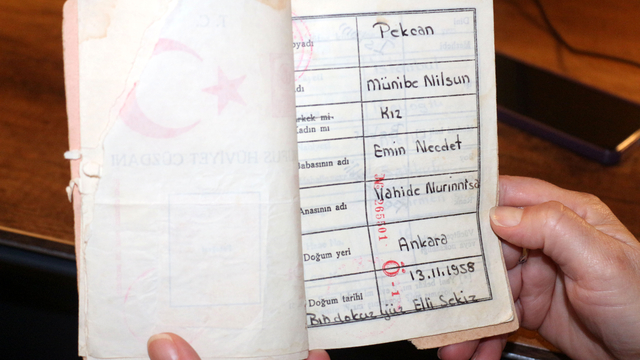 T.C.
NÜFUS HÜVİYET CÜZDANI
oyadı Pekcan
dı Münibe Nilsun
erkek mi
Kadın mı Kız
Babasının adı Emin Necdet
Anasının adı Vahide Nurinnisa
Doğum yeri Ankara
Doğum tarihi 13.11.1958
Bin dokuz yüz Elli Sekiz
265501